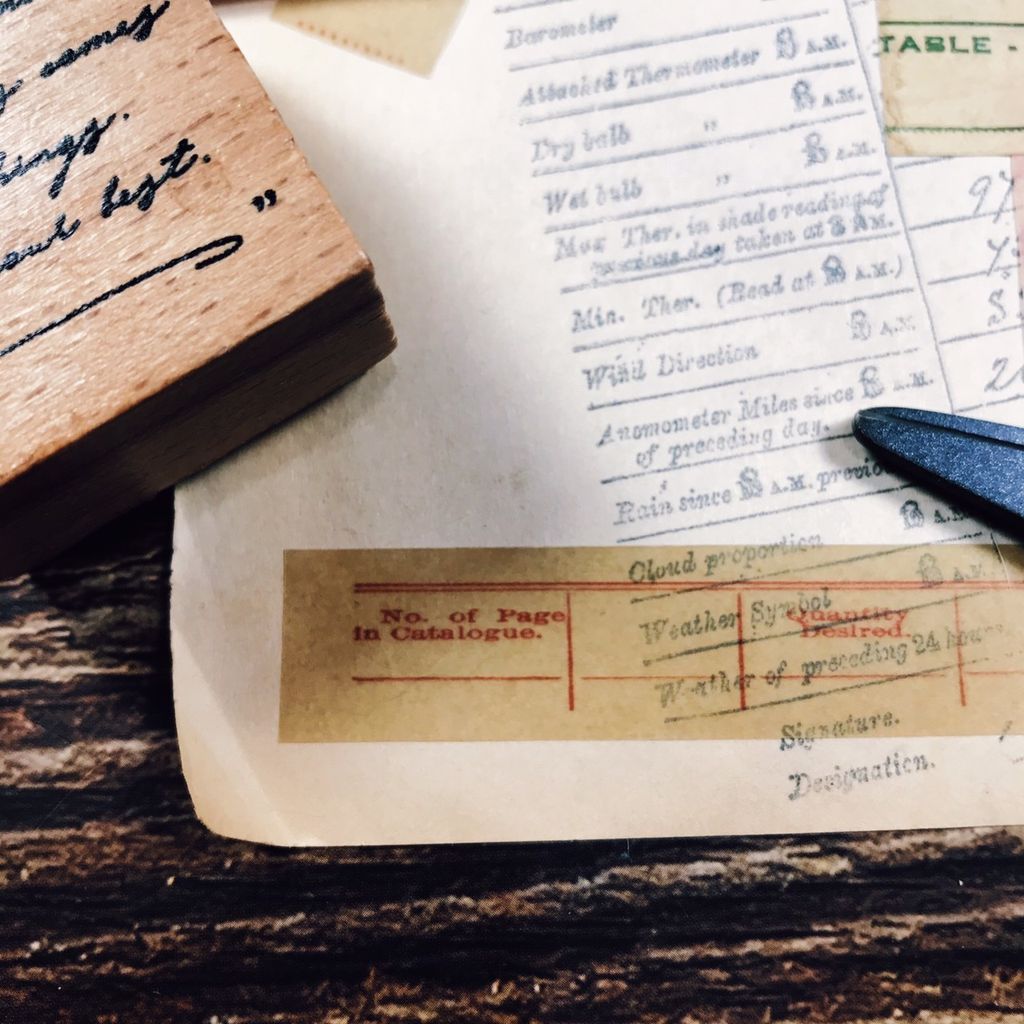 TABLE -
Barometer 8 A.M.
Attached Thermometer 8 A.M.
Dry bulb „ 8 A.M.
Wet bulb „
Max Ther. in shade reading of
previous day taken at 8 A.M.
Min. Ther. (Read at 8 A.M.)
Wind Direction 8 A.M.
Anemometer Miles since 8 A.M.
of preceding day.
Rain since 8 A.M. previo
Cloud proportion 8 A.M.
Weather Symbol 8 A.M.
Weather of preceding 24 hours.
Signature.
Designation.
No. of Page
in Catalogue.
Quantity
Desired.
97